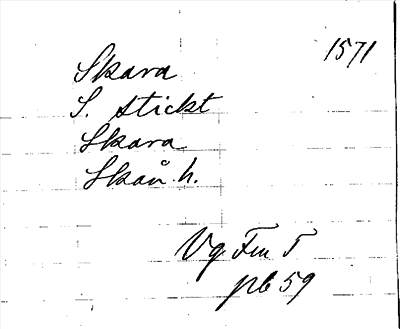 1571
Skara
S. stickt
Skara
Skån. h.
Vg Fm T
pb 59